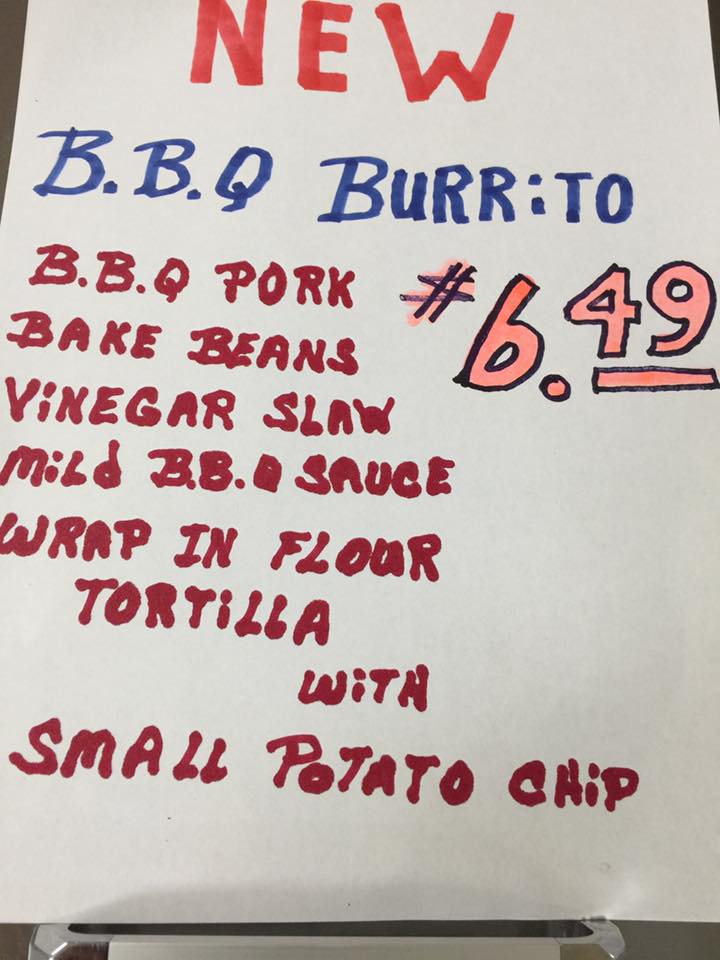 NEW
B.B.Q BURRiTO
B.B.Q PORK
#6.49
BAKE BEANS
ViNEGAR SLAW
MiLd B.B.Q SAUCE
WRAP IN FLOUR
TORTiLLA
WiTH
SMALL POTATO CHiP